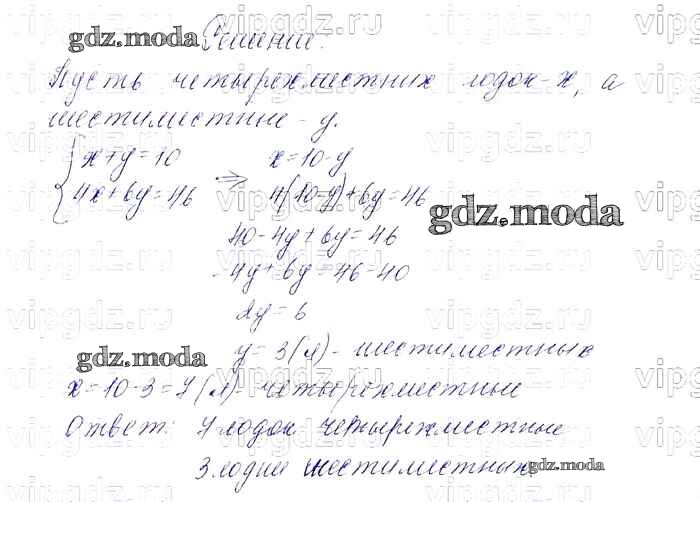 gdz.moda Решение.
Пусть четырехместных лодок - x, а
шестиместные - y.
x+y=10 x=10-y
4x+6y=46 => 4(10-y)+6y=46
gdz.moda
40-4y+6y=46
-4y+6y=46-40
2y=6
y=3(л)- шестиместных
gdz.moda
x=10-3=7(л)- четырехместные
Ответ: 7 лодок четырехместные
3 лодки шестиместных
gdz.moda
vipgdz.ru